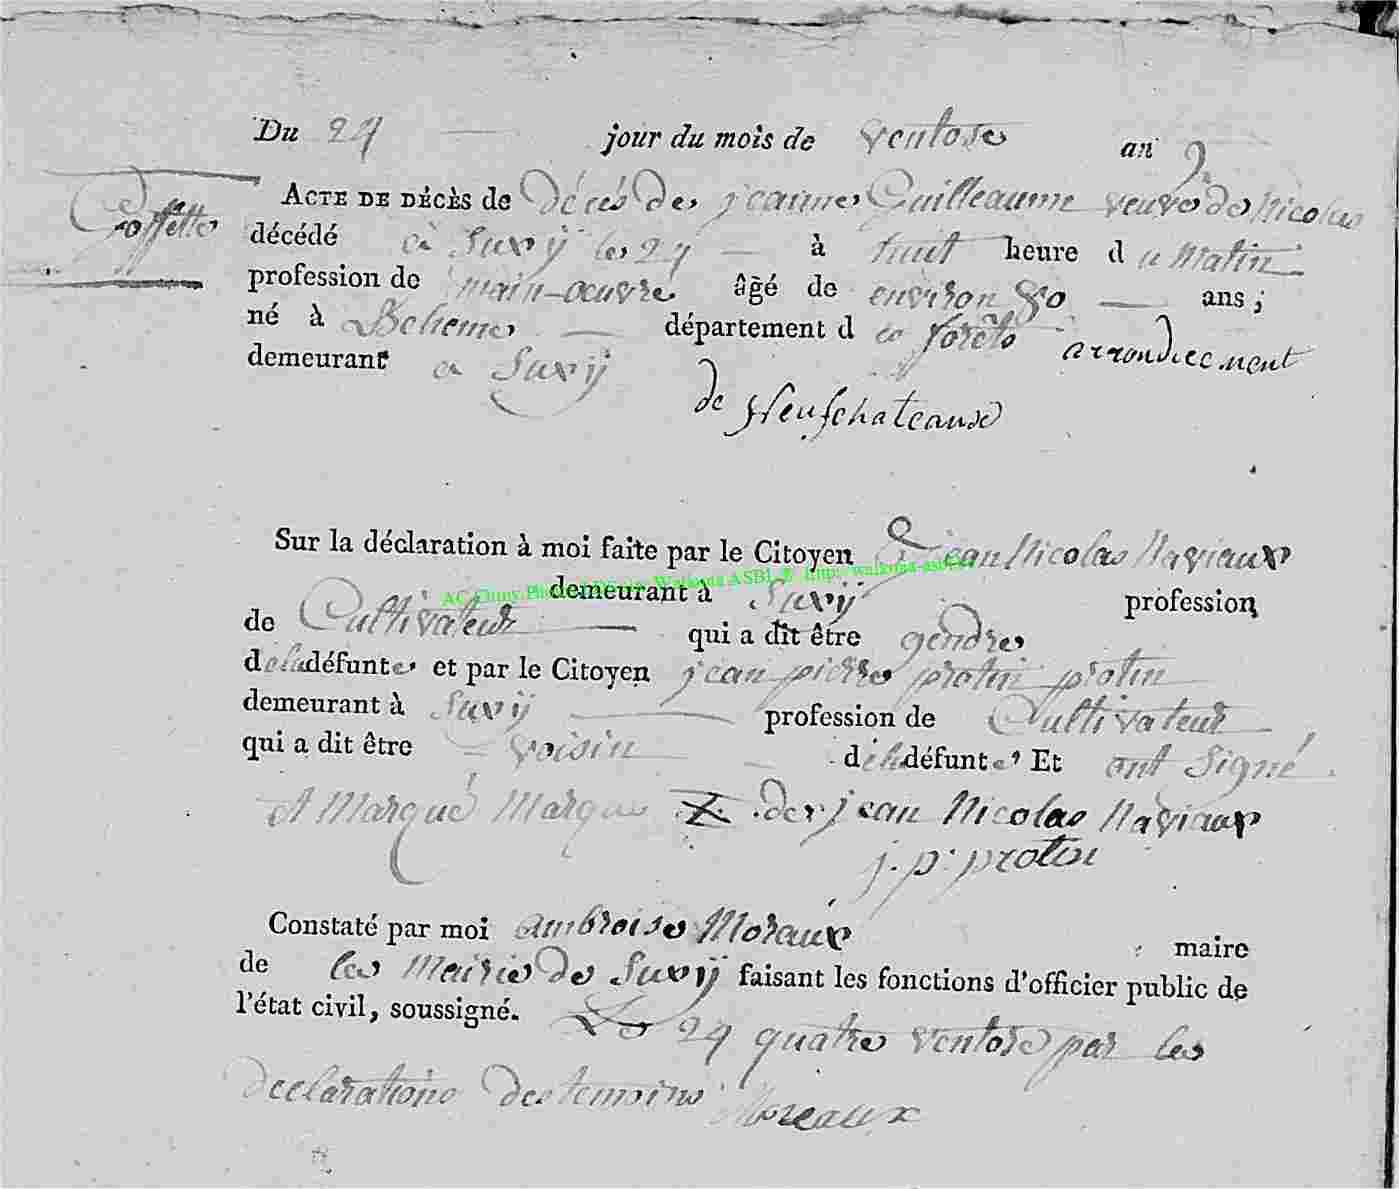 Du 24 jour du mois de ventose an 9
ACTE DE DÉCÈS de décés de jeanne Guilleaume veuve de Nicolas
Goffette
décédé a Suxÿ le 24 à huit heure du matin
profession de main-oeuvre âgé de environ 80 ans ;
né à département des forêts arrondiecment
demeurant a Suxÿ
de Neufchateaux
Sur la déclaration à moi faite par le Citoyen jean Nicolas Naviaux
demeurant à Suxÿ profession
de Cultivateur qui a dit être gendre
de la défunte et par le Citoyen jean pierre protin protin
demeurant à Suxÿ profession de Cultivateur
qui a dit être voisin de la défunte Et ont signé
et Marqué Marque X de jean Nicolas Naviaux
j. p. protin
Constaté par moi ambroise Moraux maire
de la Mairie de Suxÿ faisant les fonctions d'officier public de
l'état civil, soussigné. Le 24 quatre ventose par les
declarations des temoins Moreaux